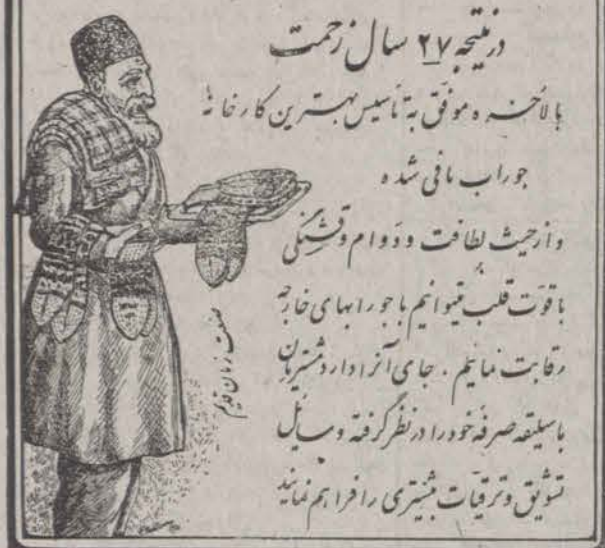 در نتیجه ۲۷ سال زحمت
بالاخره موفق به تأسیس بهترین کارخانهٔ
جوراب بافی شده
و از حیث لطافت و دوام و قشنگی
با قوّت قلب میتوانیم با جورابهای خارجه
رقابت نمائیم . جای آنرا دارد مشتریان
با سلیقه صرفه خود را در نظر گرفته وسایل
تشویق و ترقیات بیشتری را فراهم نمایند
صنعت زمان قدیم